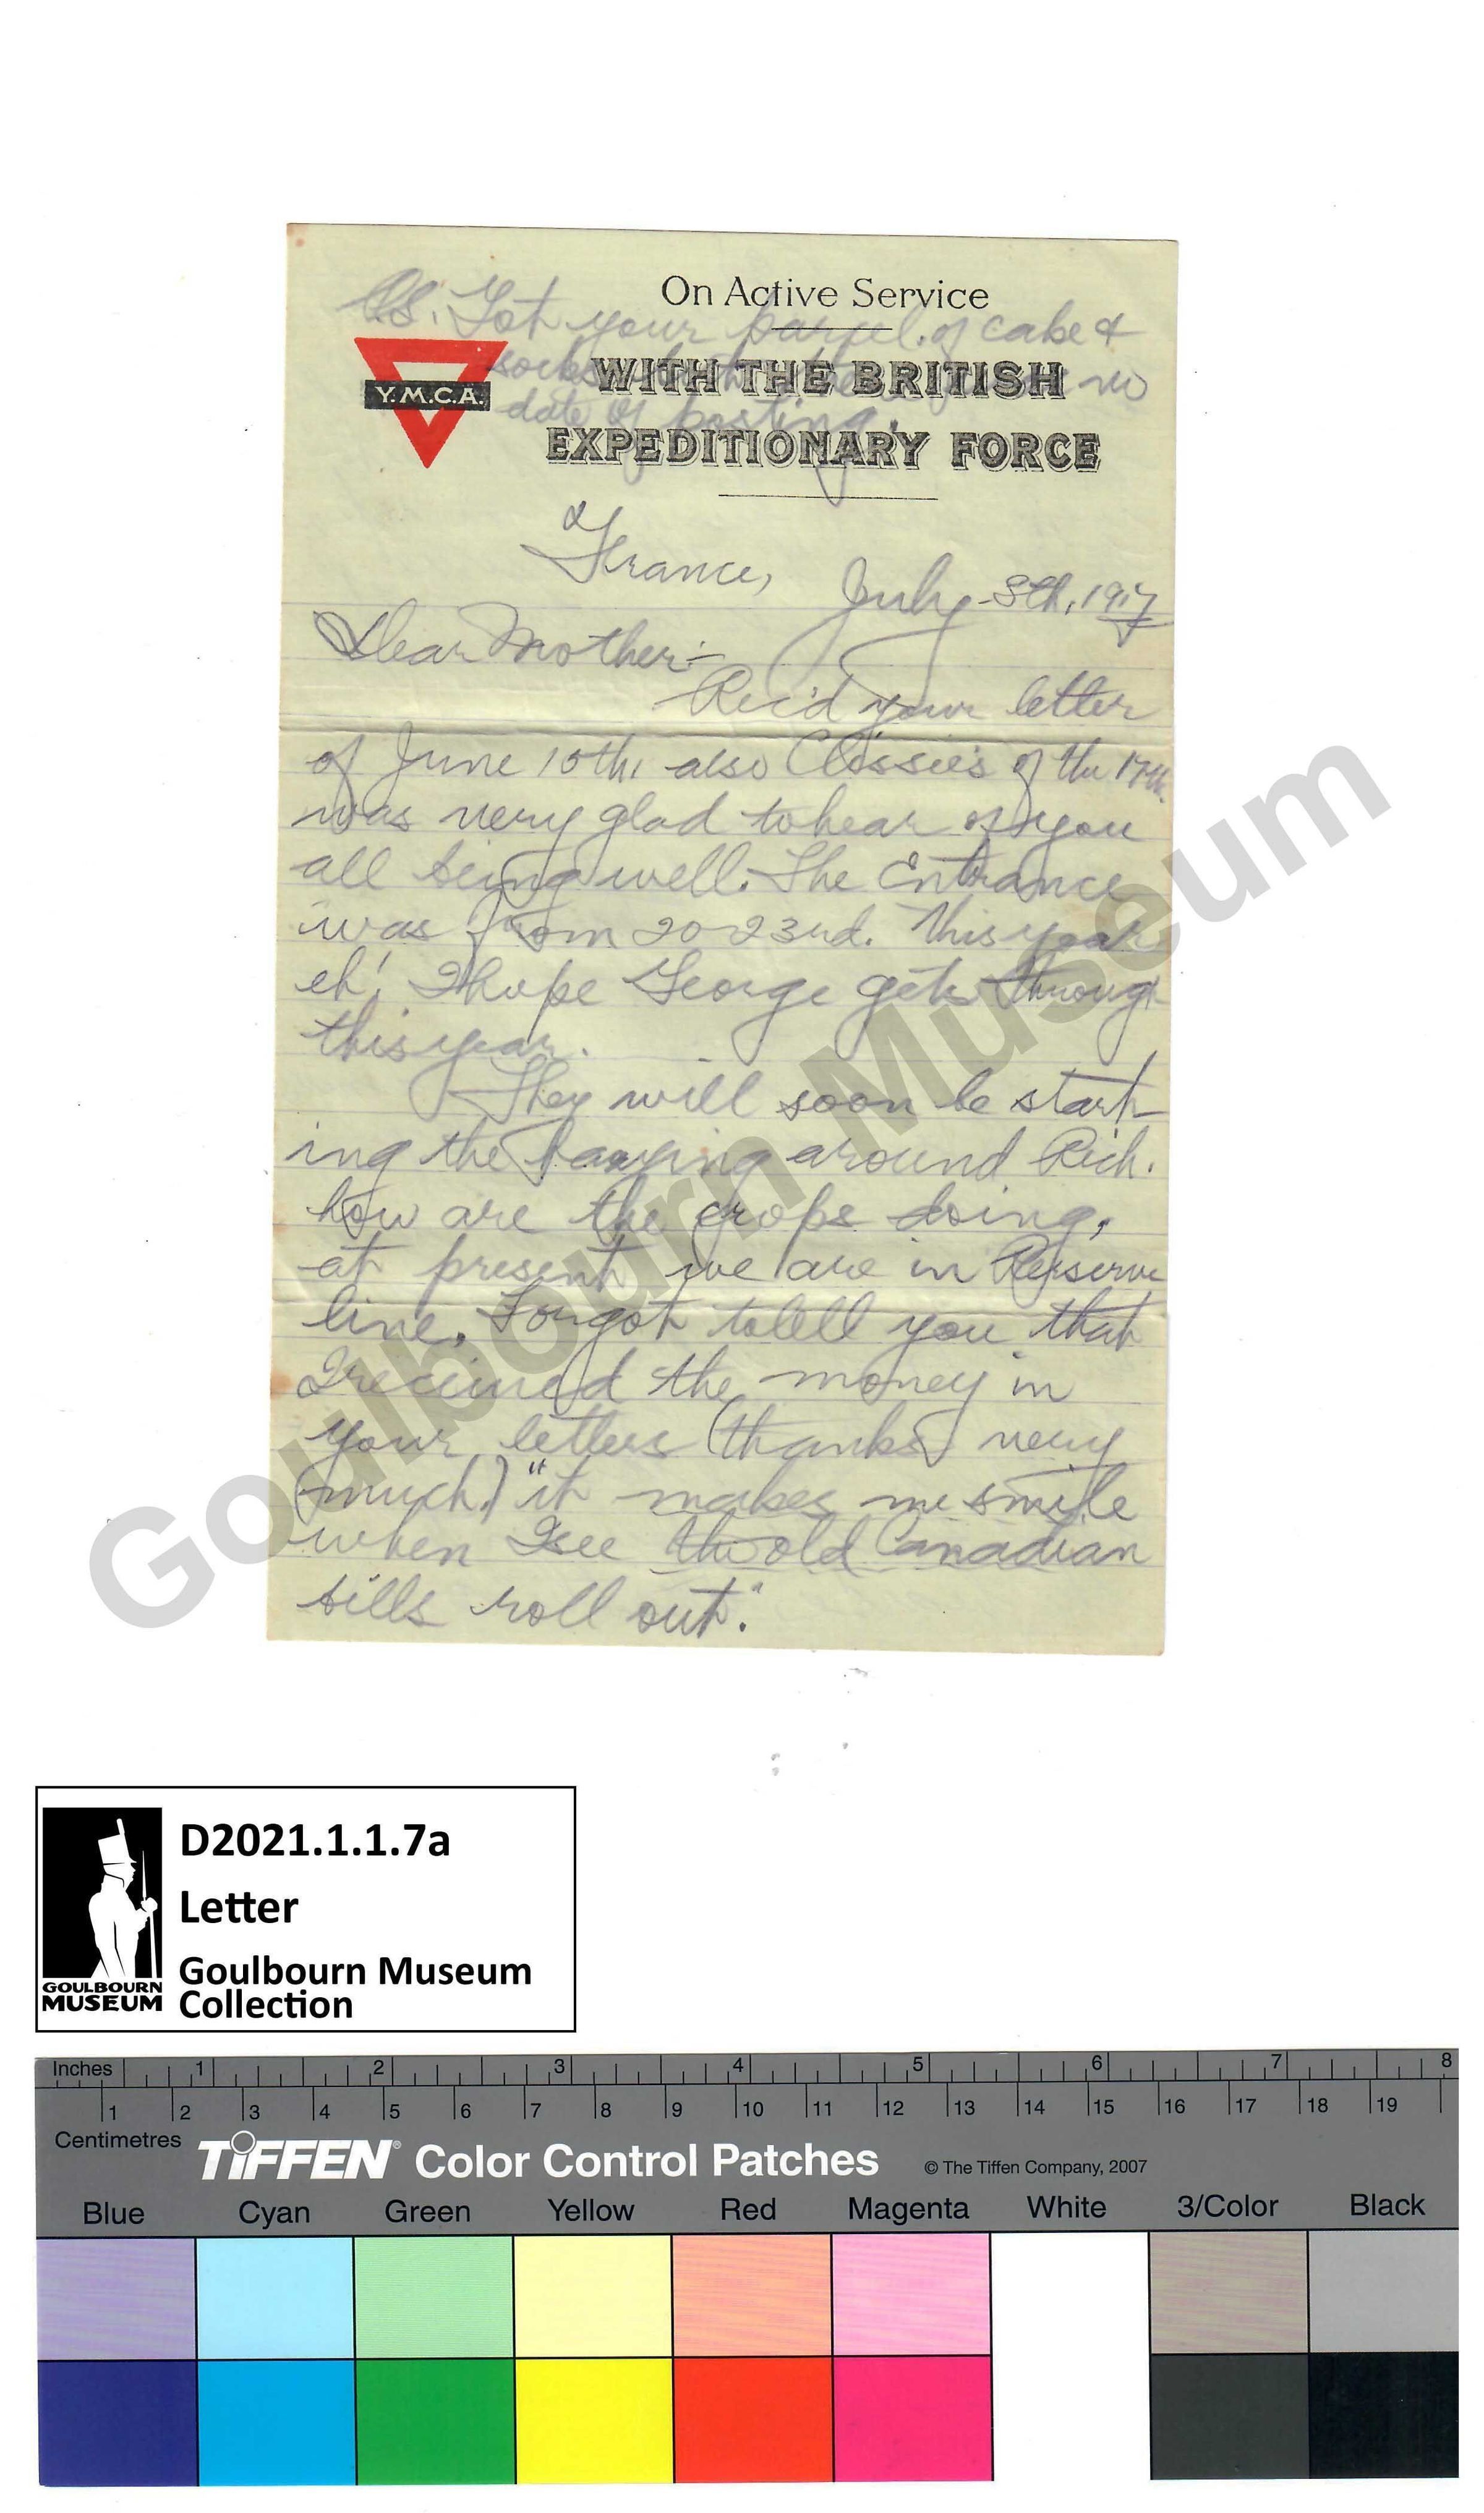 On Active Service
P.S. Got your parcel of cake &
socks no
date of posting.
Y.M.C.A.
WITH THE BRITISH
EXPEDITIONARY FORCE
France, July 8th, 1917
Dear Mother:-
Rec'd your letter
of June 15th, also Clossie's of the 17th.
was very glad to hear of you
all being well. The Entrance
was from 20-23rd. This year
eh! I hope George gets through
this year.
They will soon be start-
ing the haying around Rich.
how are the crops doing,
at present we are in Reserve
line. Forgot to tell you that
I received the money in
your letters (thanks very
much.) "it makes me smile
when I see the old Canadian
bills roll out."
Goulbourn Museum
D2021.1.1.7a
Letter
Goulbourn Museum
Collection
GOULBOURN
MUSEUM
Inches 1 2 3 4 5 6 7 8
1 2 3 4 5 6 7 8 9 10 11 12 13 14 15 16 17 18 19
Centimetres
TIFFEN® Color Control Patches © The Tiffen Company, 2007
Blue Cyan Green Yellow Red Magenta White 3/Color Black